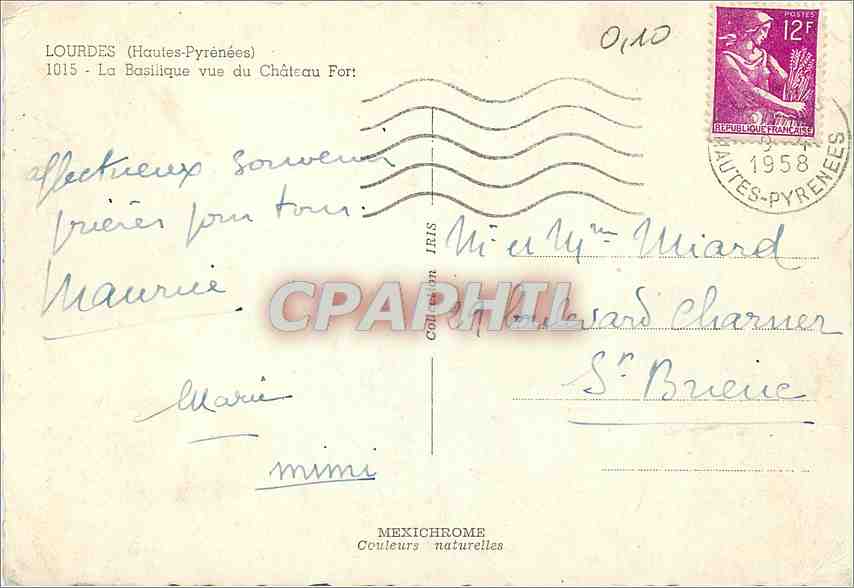 LOURDES (Hautes-Pyrénées)
1015 - La Basilique vue du Château Fort
0,10
POSTES
12F
REPUBLIQUE FRANÇAISE
1958
HAUTES-PYRENEES
affectueux souvenir
prières pour tous.
Maurice
Marie
mimi
Collection IRIS
Mr et Mme Miard
29 boulevard Charner
St Brieuc
CPAPHIL
MEXICHROME
Couleurs naturelles